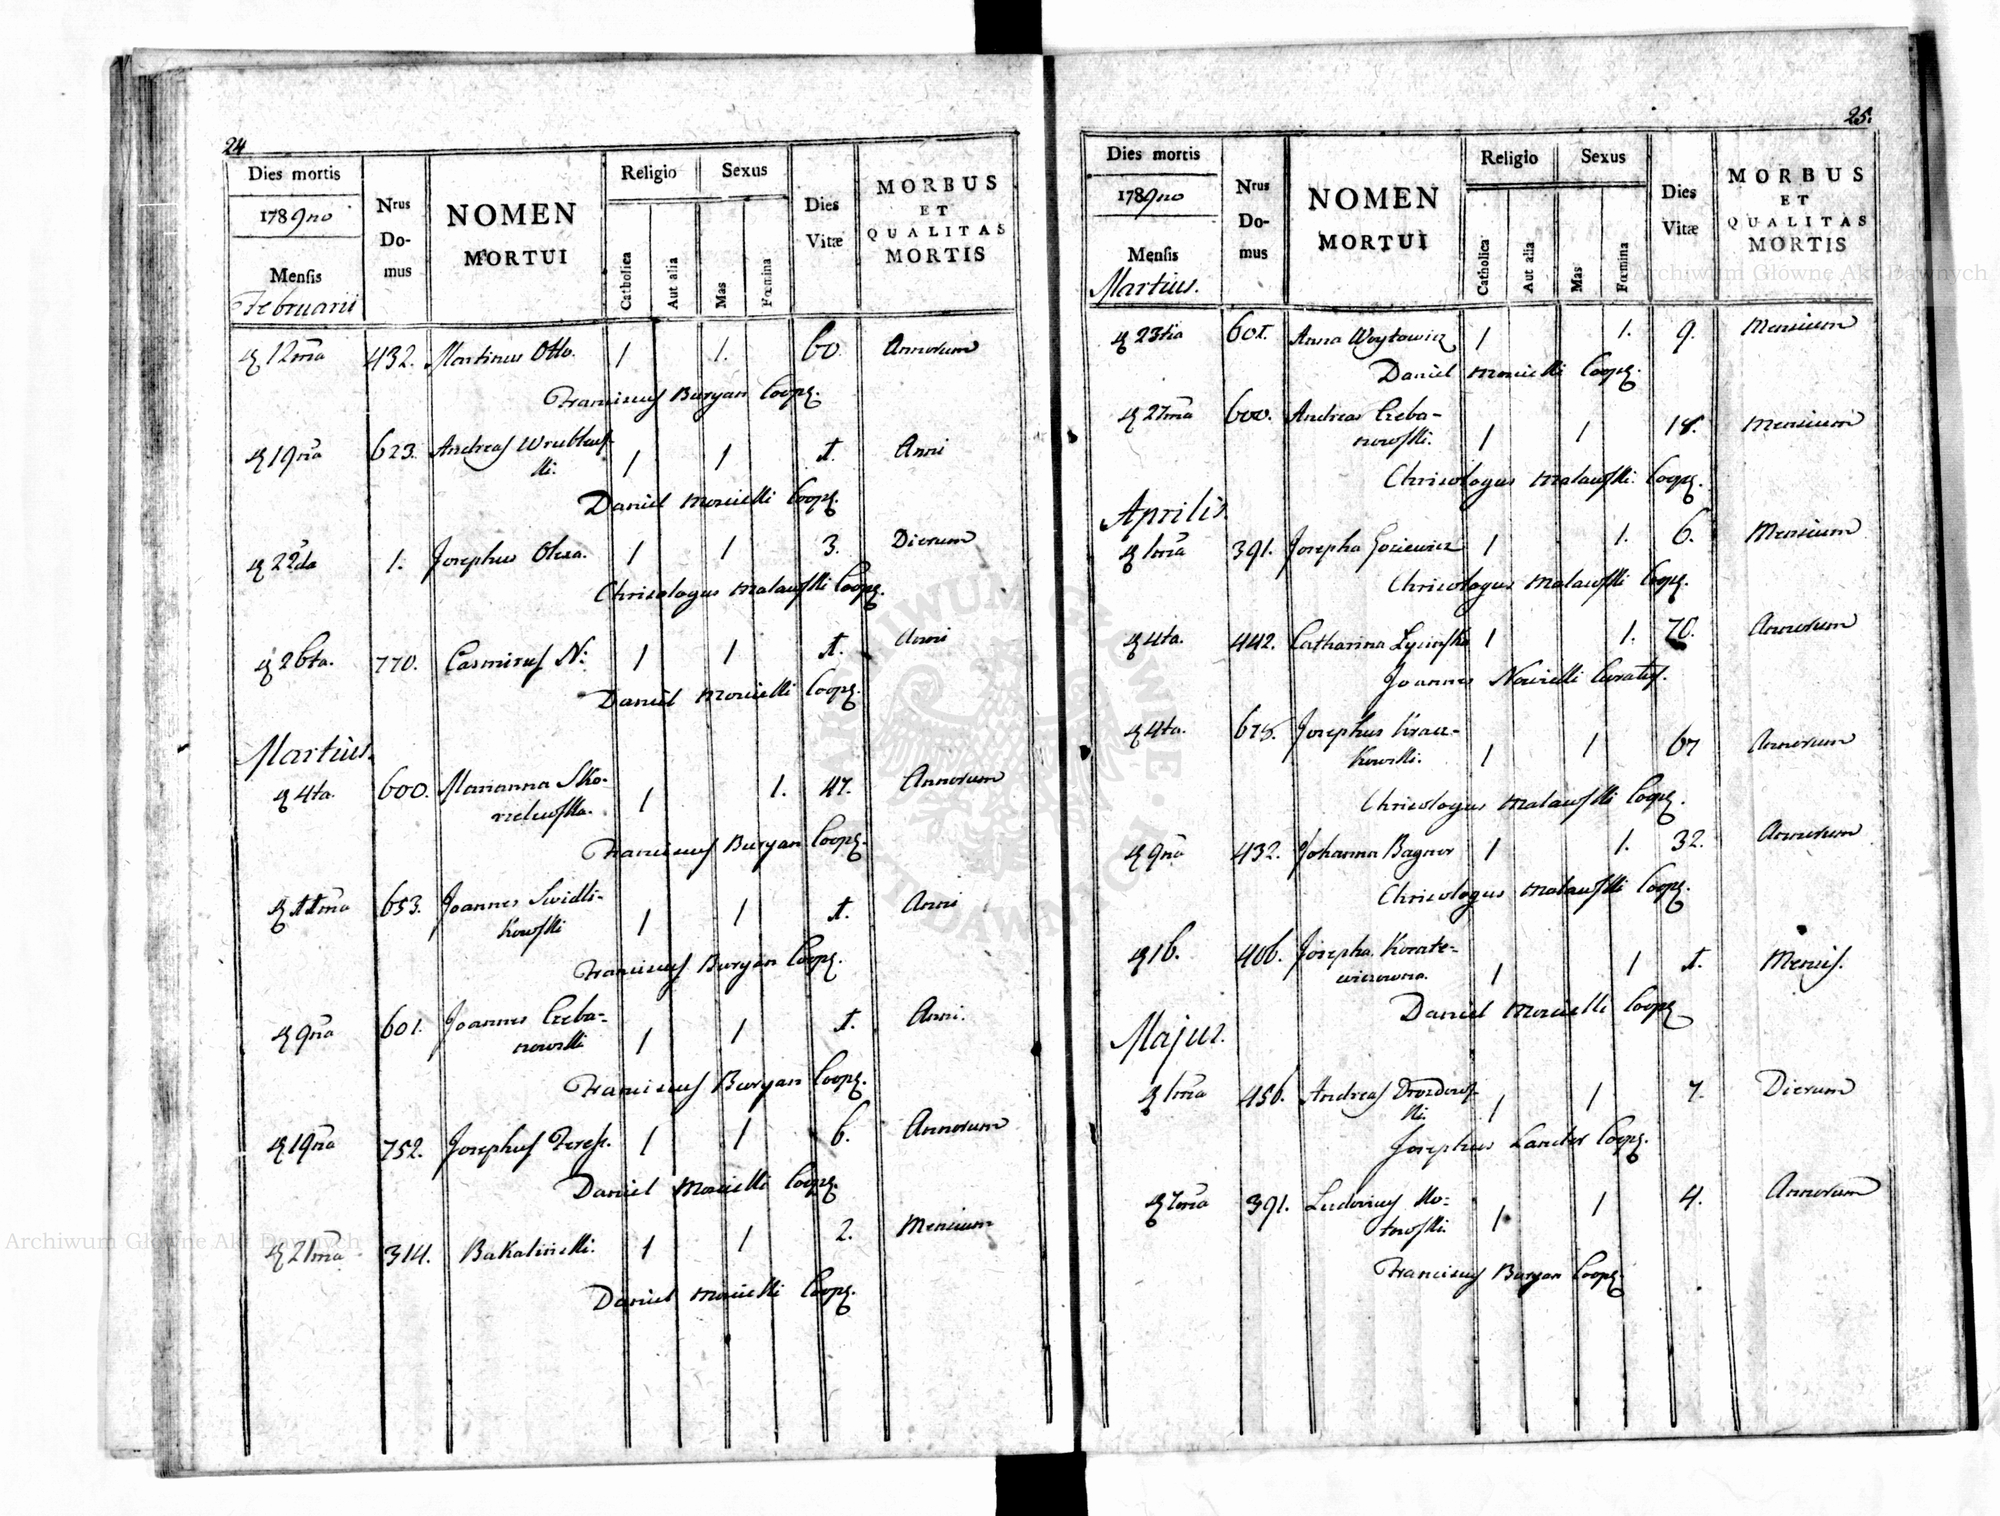 24
Dies mortis
Nrus Do- mus
NOMEN MORTUI
Religio
Sexus
Dies Vitæ
MORBUS ET QUALITAS MORTIS
1789no
Mensis
Februarii
Catholica
Aut alia
Mas
Fœmina
12ma 432. Martinus Otto. 1 1. 60. Annorum
Franciscus Buryan Coop
19na 623. Andreas Wrublews-
ki. 1 1 1. Anni
Daniel Coop
22da 1. Josephus Olexa. 1 1 3. Dierum
Chrisologus Malawski Coop
26ta. 770. Casmirus N: 1 1 1. Anni
Daniel Coop
Martius.
4ta. 600. Marianna Sko-
1 1. 47. Annorum
Franciscus Buryan Coop
11ma 653. Joannes Swidli-
kowski 1 1 1. Anni
Franciscus Buryan Coop
9na 601. Joannes Czeba-
nowski 1 1 1. Anni.
Franciscus Buryan Coop
19na 752. Josephus 1 1 6. Annorum
Daniel Coop
21ma 314. Bakalinski. 1 1 2. Mensium
Daniel Coop
25.
Dies mortis
Nrus Do- mus
NOMEN MORTUI
Religio
Sexus
Dies Vitæ
MORBUS ET QUALITAS MORTIS
1789no
Mensis
Martius.
Catholica
Aut alia
Mas
Fœmina
23tia 601. Anna Woytowicz 1 1. 9. Mensium
Daniel Coop
27ma 600. Andreas Czeba-
nowski. 1 1 18. Mensium
Chrisologus Malawski Coop
Aprilis.
1ma 391. Josepha 1 1. 6. Mensium
Chrisologus Malawski Coop
4ta. 442. Catharina 1 1. 70. Annorum
Joannes Curatus.
4ta. 678. Josephus Kracz-
kowski. 1 1 67 Annorum
Chrisologus Malawski Coop
9na 432. Johanna Bagner 1 1. 32. Annorum
Chrisologus Malawski Coop
16. 406. Josepha Korate-
wiczowna. 1 1 1. Mensis.
Daniel Coop
Majus.
1ma 456. Andreas Drozdows-
ki. 1 1 7. Dierum
Josephus Coop
7ma 391. Ludovicus Ko-
towski. 1 1 4. Annorum
Franciscus Buryan Coop
ARCHIWUM GŁÓWNE AKT DAWNYCH
Archiwum Główne Akt Dawnych
Archiwum Główne Akt Dawnych